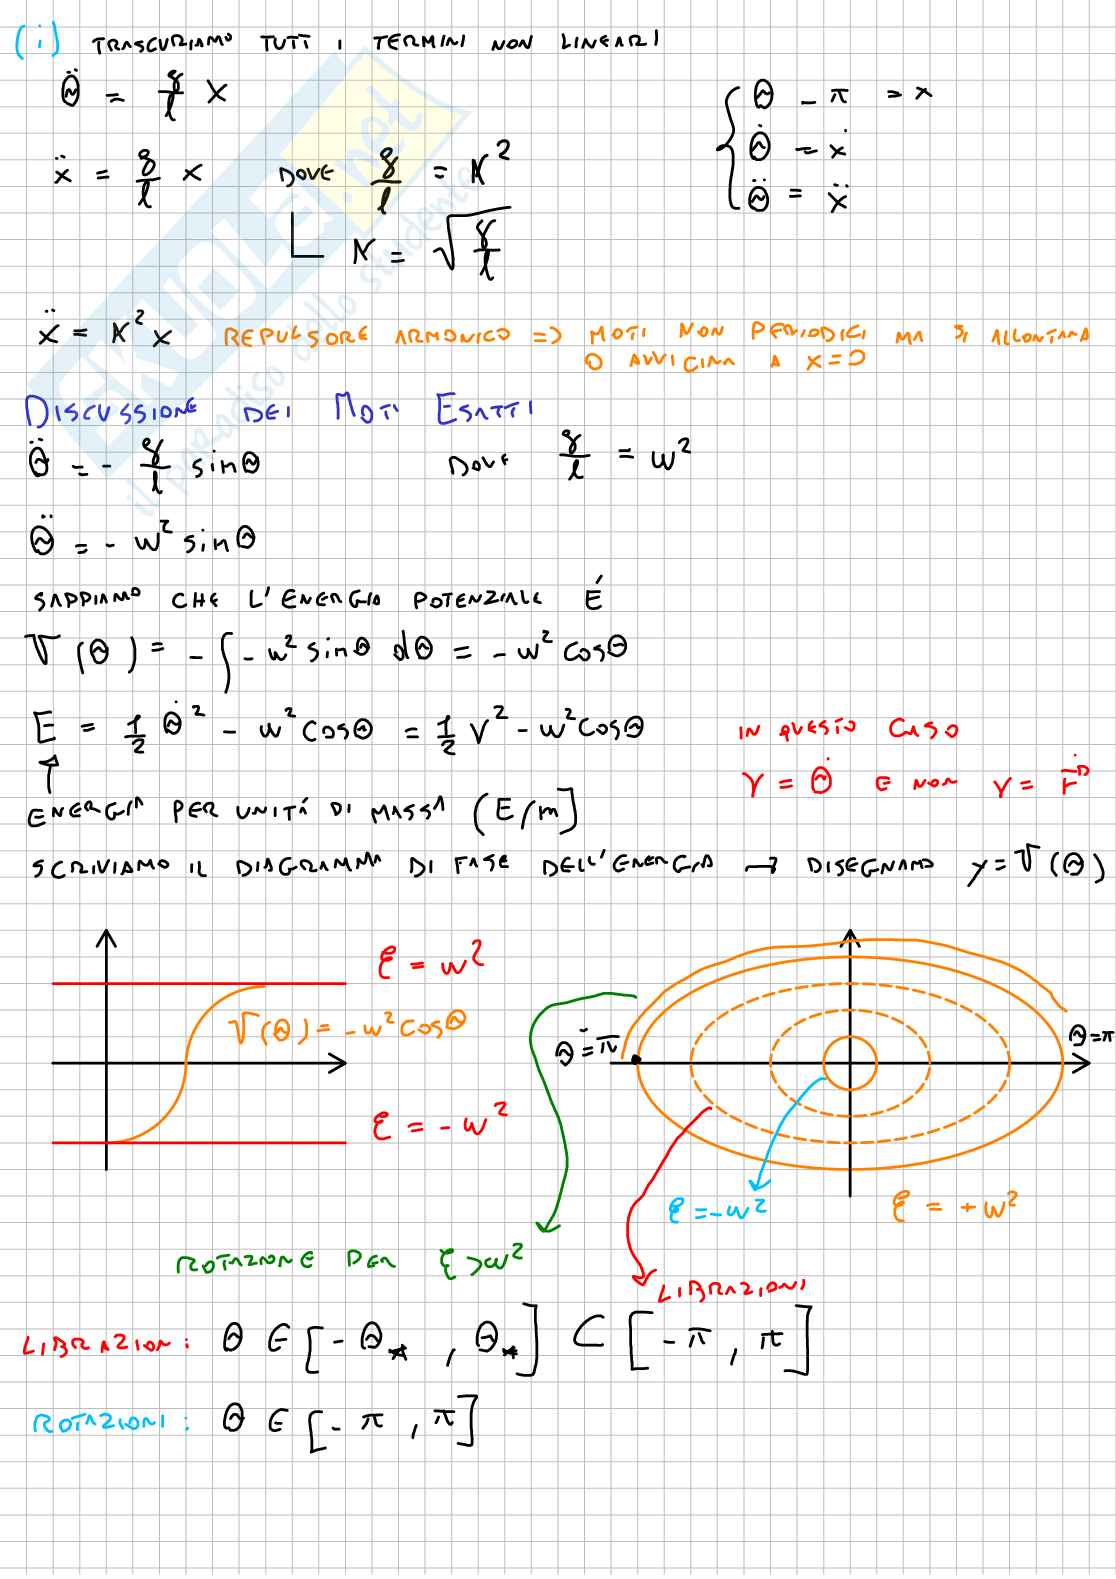 (i) TRASCURIAMO TUTT I TERMINI NON LINEARI
Θ̈ = g/l x
{ Θ - π = x
Θ̇ = ẋ
Θ̈ = ẍ
ẍ = g/l x DOVE g/l = K²
K = √(g/l)
ẍ = K² x REPULSORE ARMONICO => MOTI NON PERIODICI MA SI ALLONTANA
O AVVICINA A x = 0
DISCUSSIONE DEI MOTI ESATTI
Θ̈ = - g/l sinΘ DOVE g/l = w²
Θ̈ = - w² sinΘ
SAPPIAMO CHE L'ENERGIA POTENZIALE É
V(Θ) = - ∫ - w² sinΘ dΘ = - w² cosΘ
E = 1/2 Θ̇² - w² cosΘ = 1/2 V² - w² cosΘ
IN QUESTO CASO
V = Θ̇ E NON V = ṙ
ENERGIA PER UNITÁ DI MASSA (E/m]
SCRIVIAMO IL DIAGRAMMA DI FASE DELL'ENERGIA → DISEGNAMO y = V(Θ)
E = w²
V(Θ) = - w² cosΘ
E = - w²
Θ = π
Θ = π
E = - w²
E = + w²
ROTAZIONE PER E > w²
LIBRAZIONI
LIBRAZIONI: Θ ∈ [-Θ⋆, Θ⋆] ⊂ [-π, π]
ROTAZIONI: Θ ∈ [-π, π]
SKUOLA.net
il paradiso dello studente